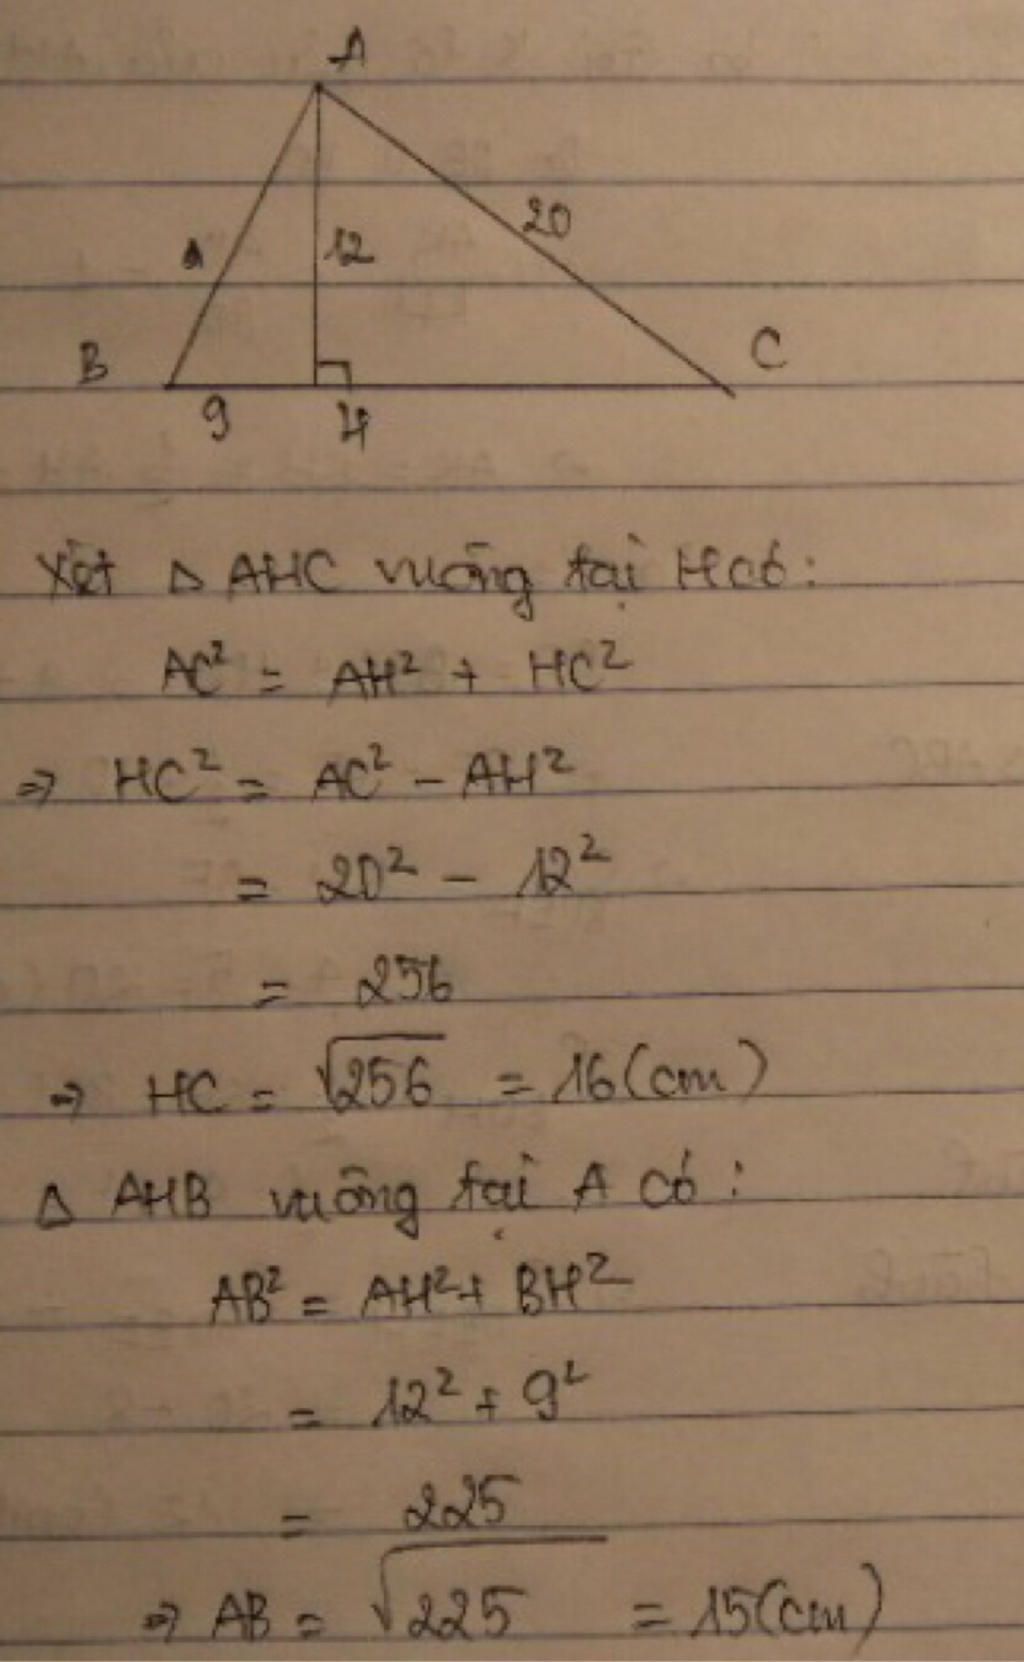 A
20
12
B
C
9
H
Xét Δ AHC vuông tại H có:
AC² = AH² + HC²
⇒ HC² = AC² - AH²
= 20² - 12²
= 256
⇒ HC = √256 = 16 (cm)
Δ AHB vuông tại A có:
AB² = AH² + BH²
= 12² + 9²
= 225
⇒ AB = √225 = 15 (cm)